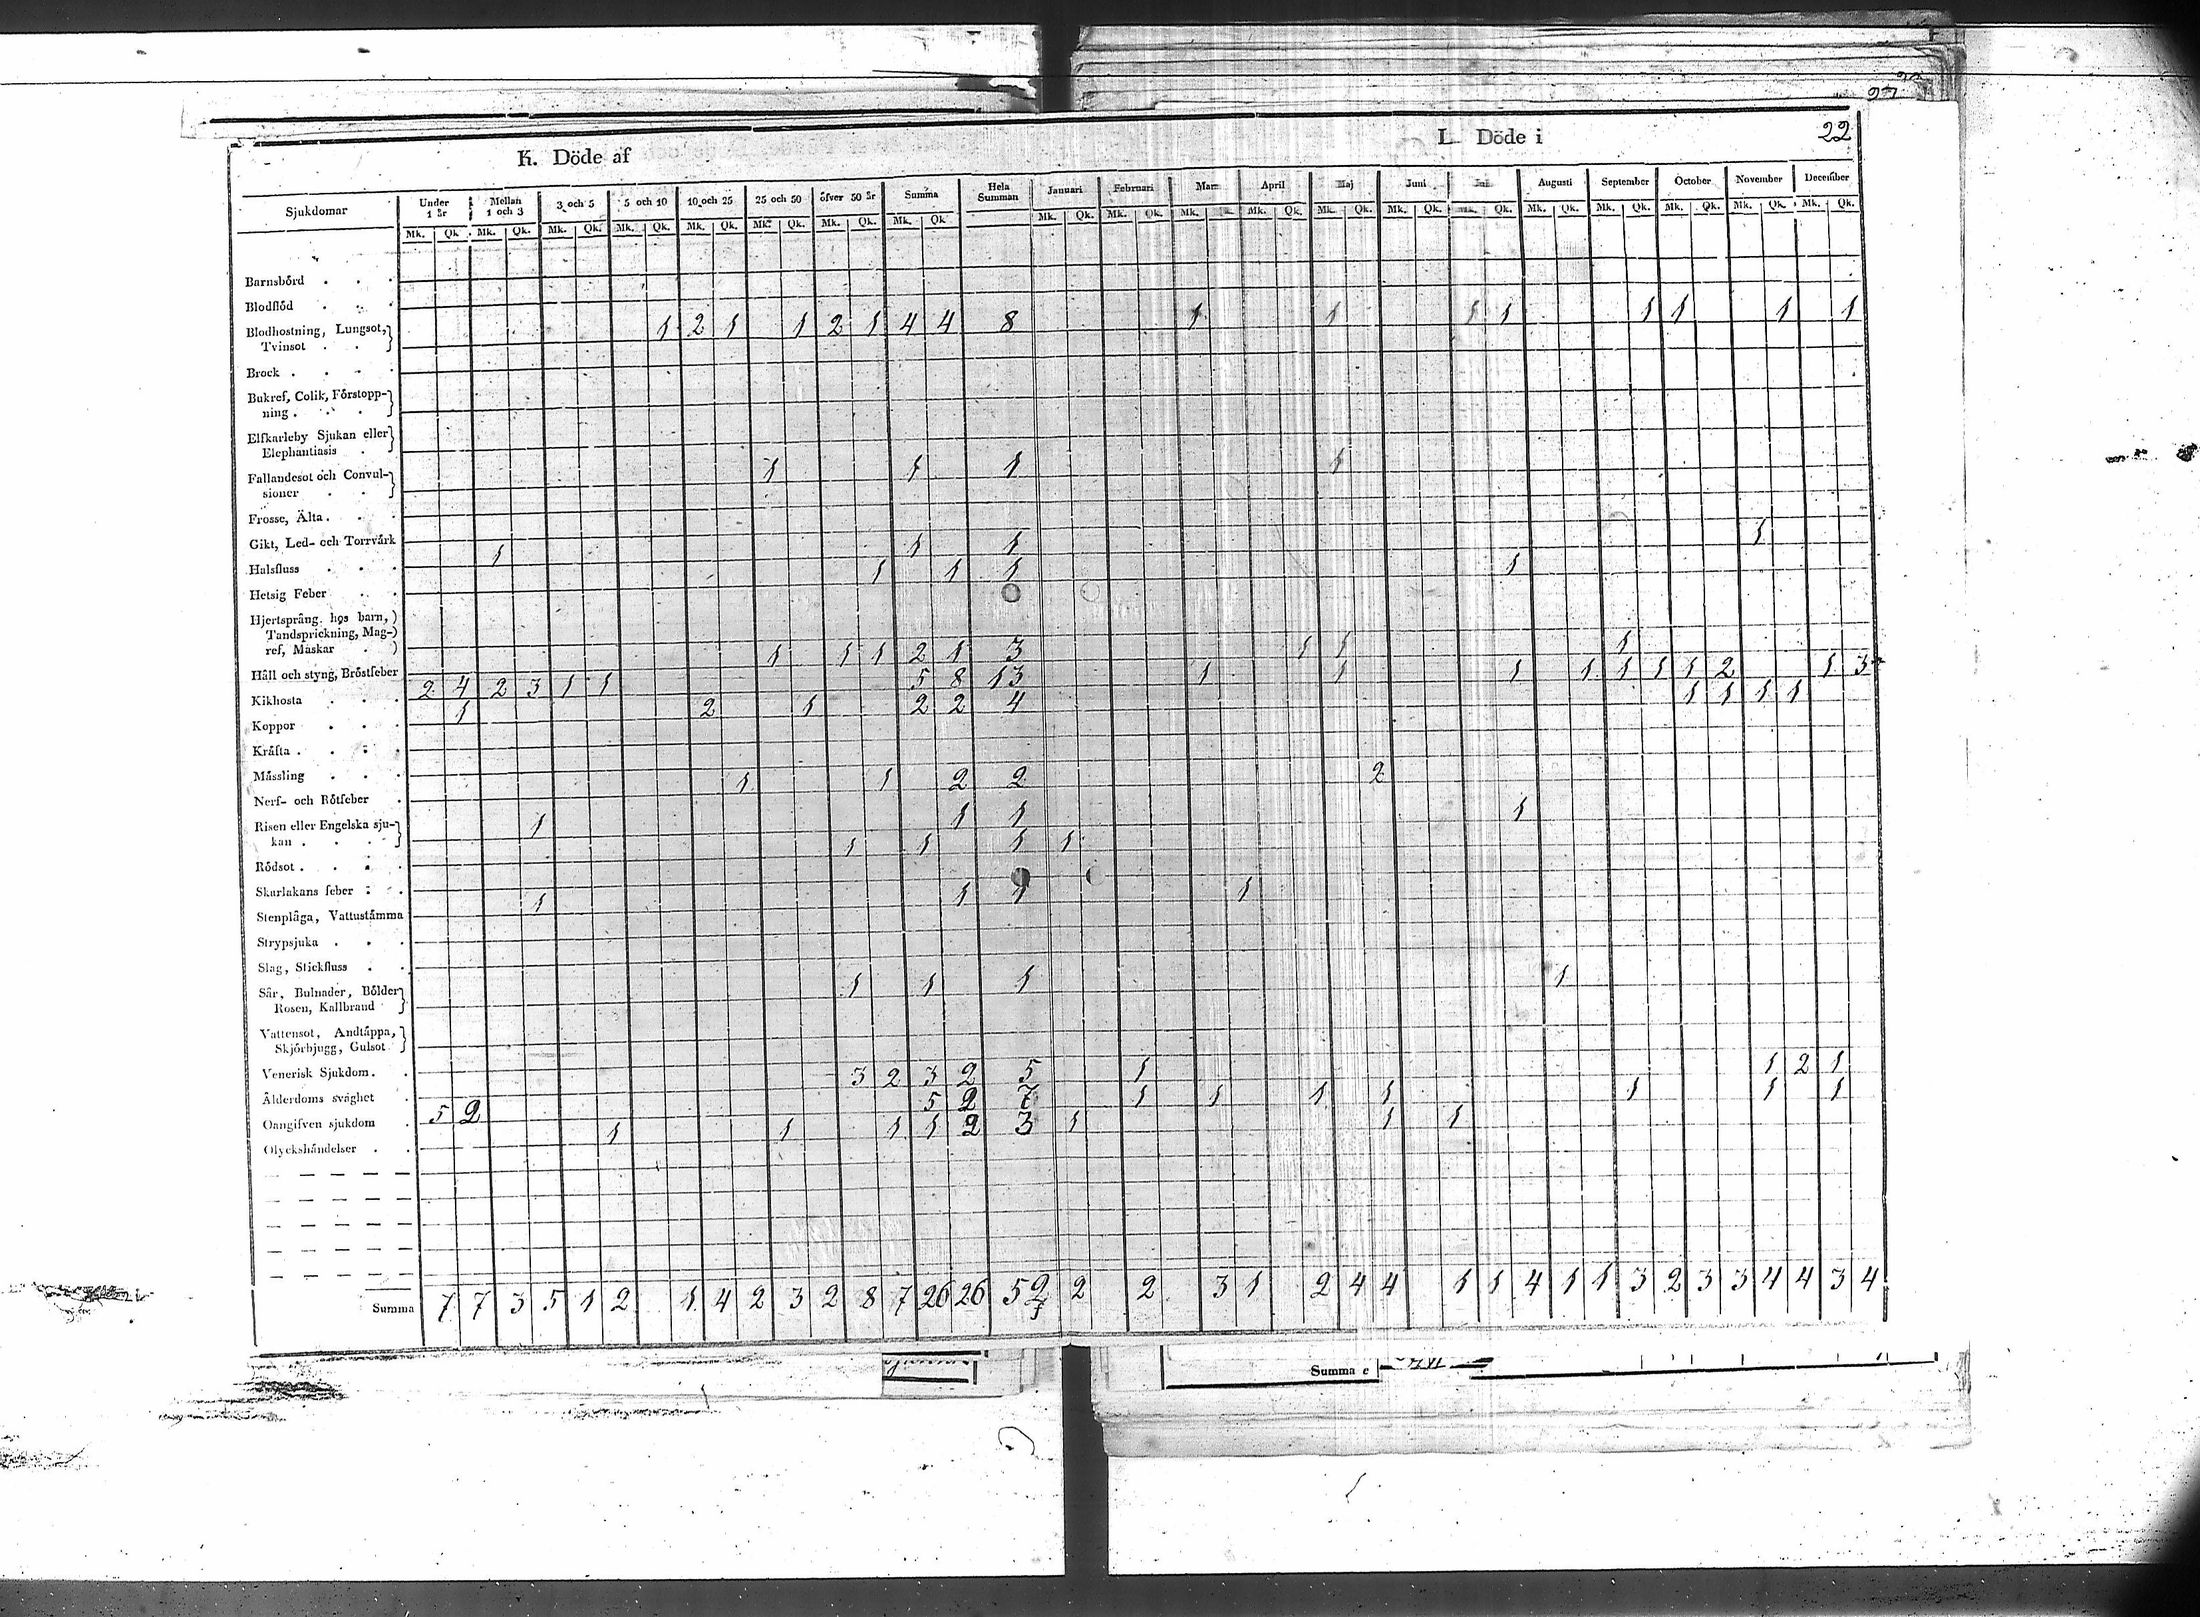 22
K. Döde af L. Döde i
Sjukdomar Under 1 år Mellan 1 och 3 3 och 5 5 och 10 10 och 25 25 och 50 öfver 50 år Summa Hela Summan Januari Februari Mars April Maj Juni Juli Augusti September October November December
Mk. Qk. Mk. Qk. Mk. Qk. Mk. Qk. Mk. Qk. Mk. Qk. Mk. Qk. Mk. Qk. Mk. Qk. Mk. Qk. Mk. Mk. Qk. Mk. Qk. Mk. Qk. Qk. Mk. Qk. Mk. Qk. Mk. Qk. Mk. Qk. Mk. Qk.
Barnsbörd
Blodflöd
Blodhostning, Lungsot, 1 2 1 1 2 1 4 4 8 1 1 1 1 1 1 1 1
Tvinsot
Brock
Bukref, Colik, Förstopp-
ning
Elfkarleby Sjukan eller
Elephantiasis
Fallandesot och Convul- 1 1 1 1
sioner
Frosse, Älta
Gikt, Led- och Torrvärk 1 1 1 1
Halsfluss 1 1 1 1
Hetsig Feber
Hjertsprång hos barn,
Tandsprickning, Mag-
ref, Maskar 1 1 1 2 1 3 1 1 1
Håll och styng, Bröstfeber 2 4 2 3 1 1 5 8 13 1 1 1 1 1 1 1 2 1 3
Kikhosta 1 2 1 2 2 4 1 1 1 1
Koppor
Kräfta
Mässling 1 1 2 2 2
Nerf- och Rötfeber
Risen eller Engelska sju- 1 1 1 1
kan 1 1 1 1
Rödsot
Skarlakans feber 1 1 1 1
Stenplåga, Vattustämma
Strypsjuka
Slag, Stickfluss
Sår, Bulnader, Bölder 1 1 1 1
Rosen, Kallbrand
Vattensot, Andtäppa,
Skjörbjugg, Gulsot
Venerisk Sjukdom 3 2 3 2 5 1 1 2 1
Ålderdoms svaghet 5 2 5 2 7 1 1 1 1 1 1 1
Oangifven sjukdom 1 1 1 1 2 3 1 1 1
Olyckshändelser
Summa 7 7 3 5 1 2 1 4 2 3 2 8 7 26 26 52 2 2 3 1 2 4 4 1 1 4 1 1 3 2 3 3 4 4 3 4
Summa